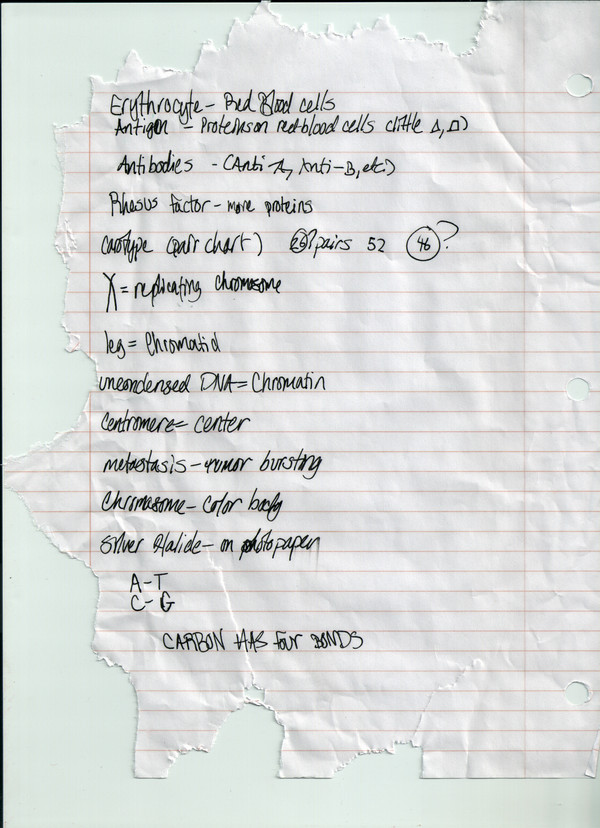 Erythrocyte - Red Blood cells
Antigen - Proteins on red blood cells (little Δ, □)
Antibodies - (Anti-A, Anti-B, etc.)
Rhesus factor - more proteins
carotype (pair chart) 26? pairs 52 46?
X = replicating chromosome
leg = Chromatid
uncondensed DNA = Chromatin
Centromere = center
metastasis - tumor bursting
Chromasome - color body
silver Halide - on photopaper
A-T
C-G
CARBON HAS four BONDS